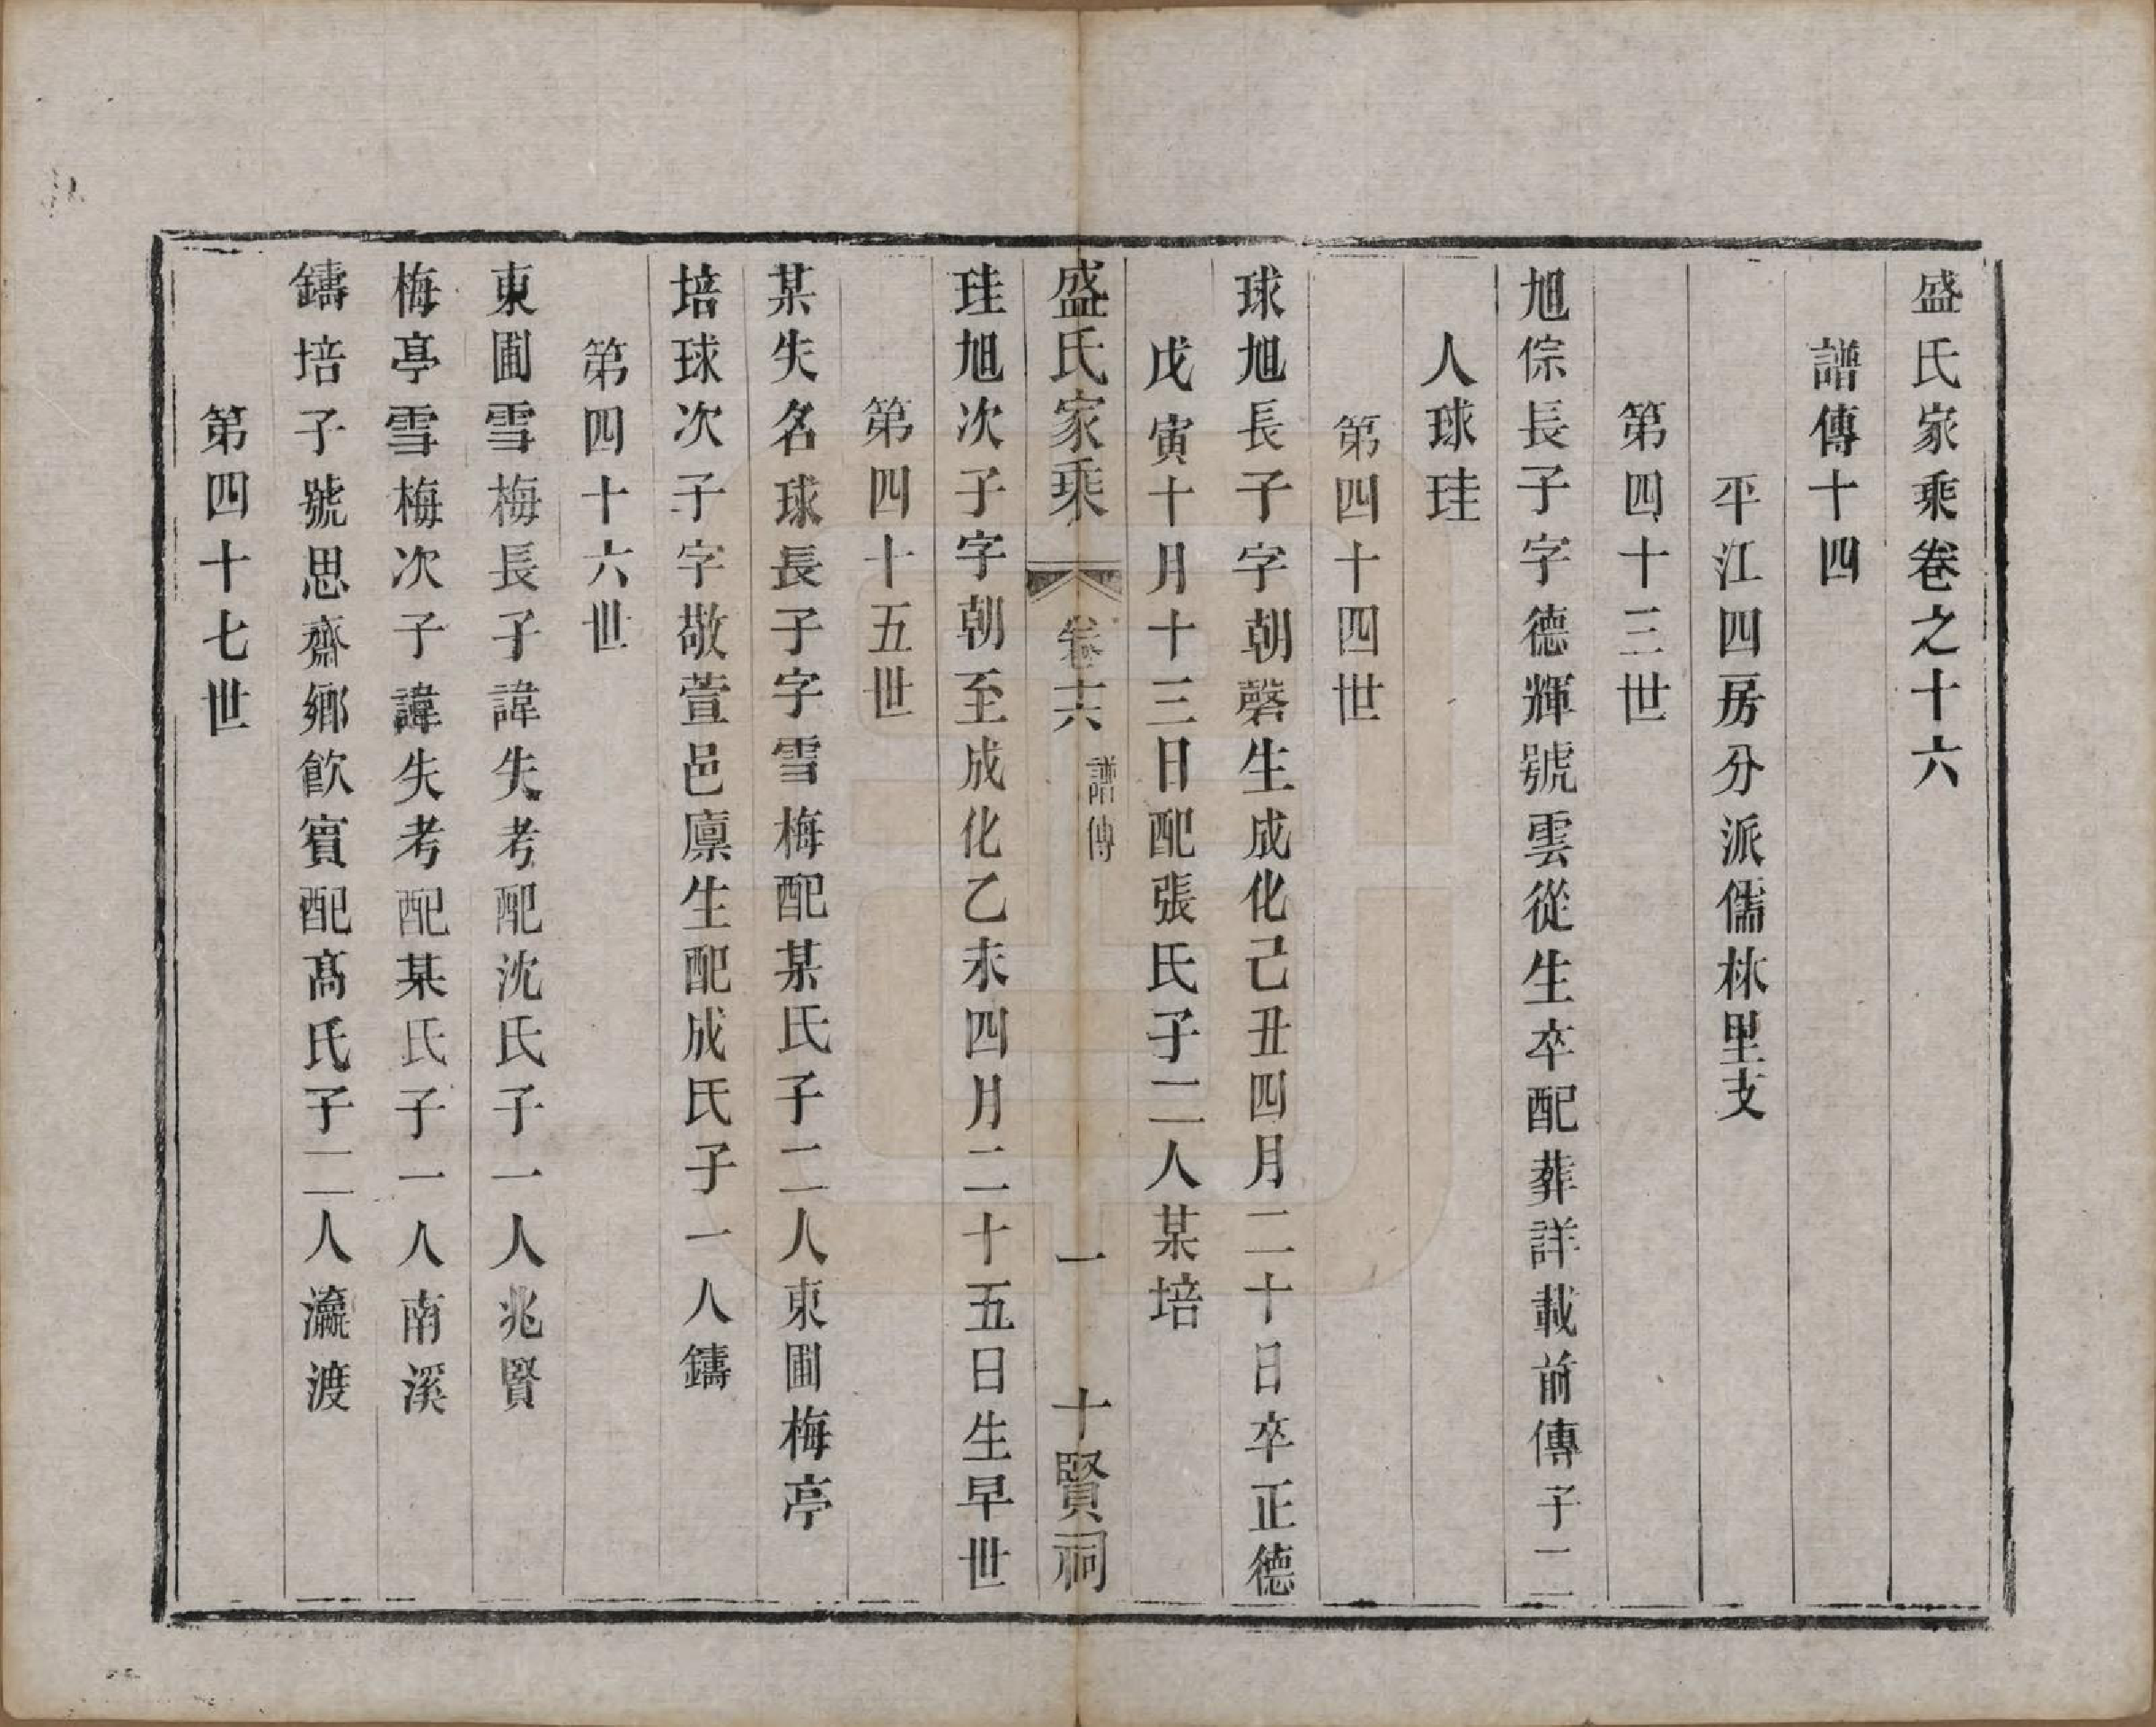 盛氏家乘卷之十六
譜傳十四
平江四房分派儒林里支
第四十三世
旭倧長子字德輝號雲從生卒配葬詳載前傳子二
人球珪
第四十四世
球旭長子字朝磬生成化己丑四月二十日卒正德
戊寅十月十三日配張氏子二人某培
盛氏家乘 卷十六 譜傳 一 十賢祠
珪旭次子字朝至成化乙未四月二十五日生早世
第四十五世
某失名球長子字雪梅配某氏子二人東圃梅亭
培球次子字敬萱邑廩生配成氏子一人鑄
第四十六世
東圃雪梅長子諱失考配沈氏子一人兆賢
梅亭雪梅次子諱失考配某氏子一人南溪
鑄培子號思齋鄉飲賓配髙氏子二人瀛渡
第四十七世